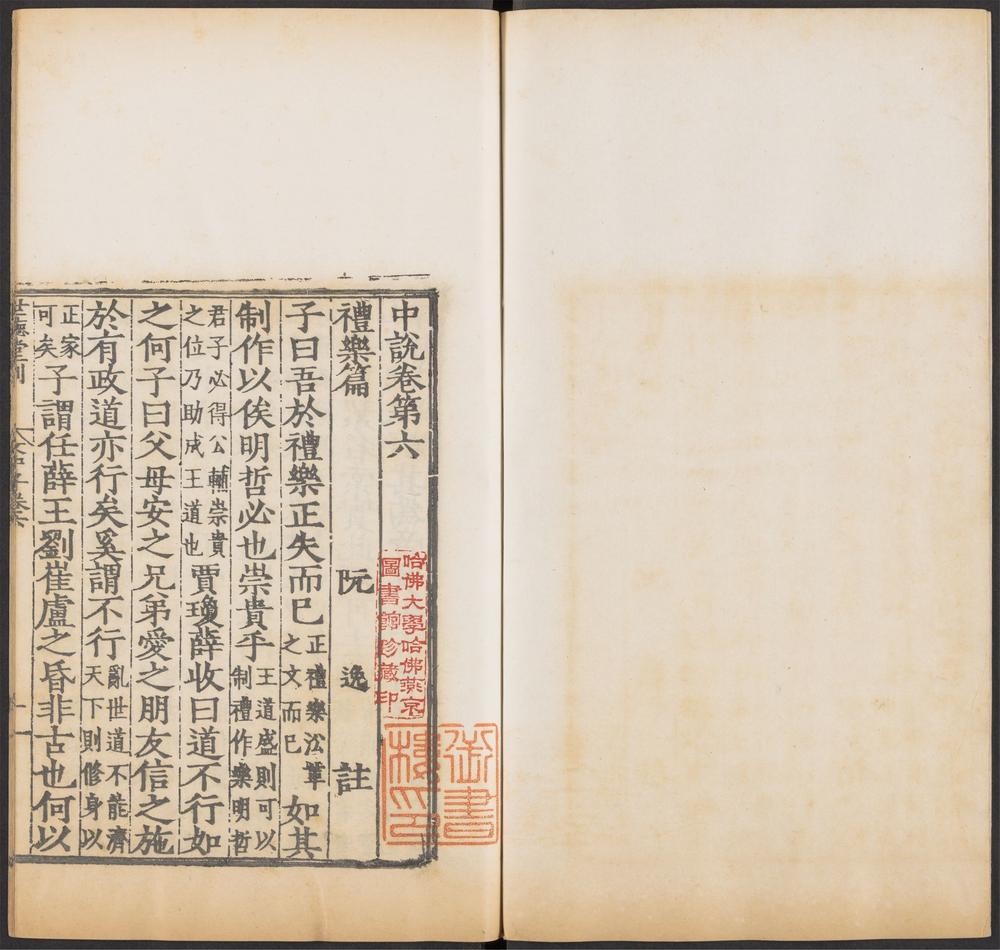 中說卷第六
禮樂篇 阮 逸 註
子曰吾於禮樂正失而已正禮樂沿革之文而已如其
制作以俟明哲必也崇貴乎王道盛則可以制禮作樂明哲
君子必得公輔崇貴之位乃助成王道也賈瓊薛收曰道不行如
之何子曰父母安之兄弟愛之朋友信之施
於有政道亦行矣奚謂不行亂世道不能濟天下則修身以
正家可矣子謂任薛王劉崔盧之昏非古也何以
世德堂刊
哈佛大學哈佛燕京
圖書館珍藏印
御書